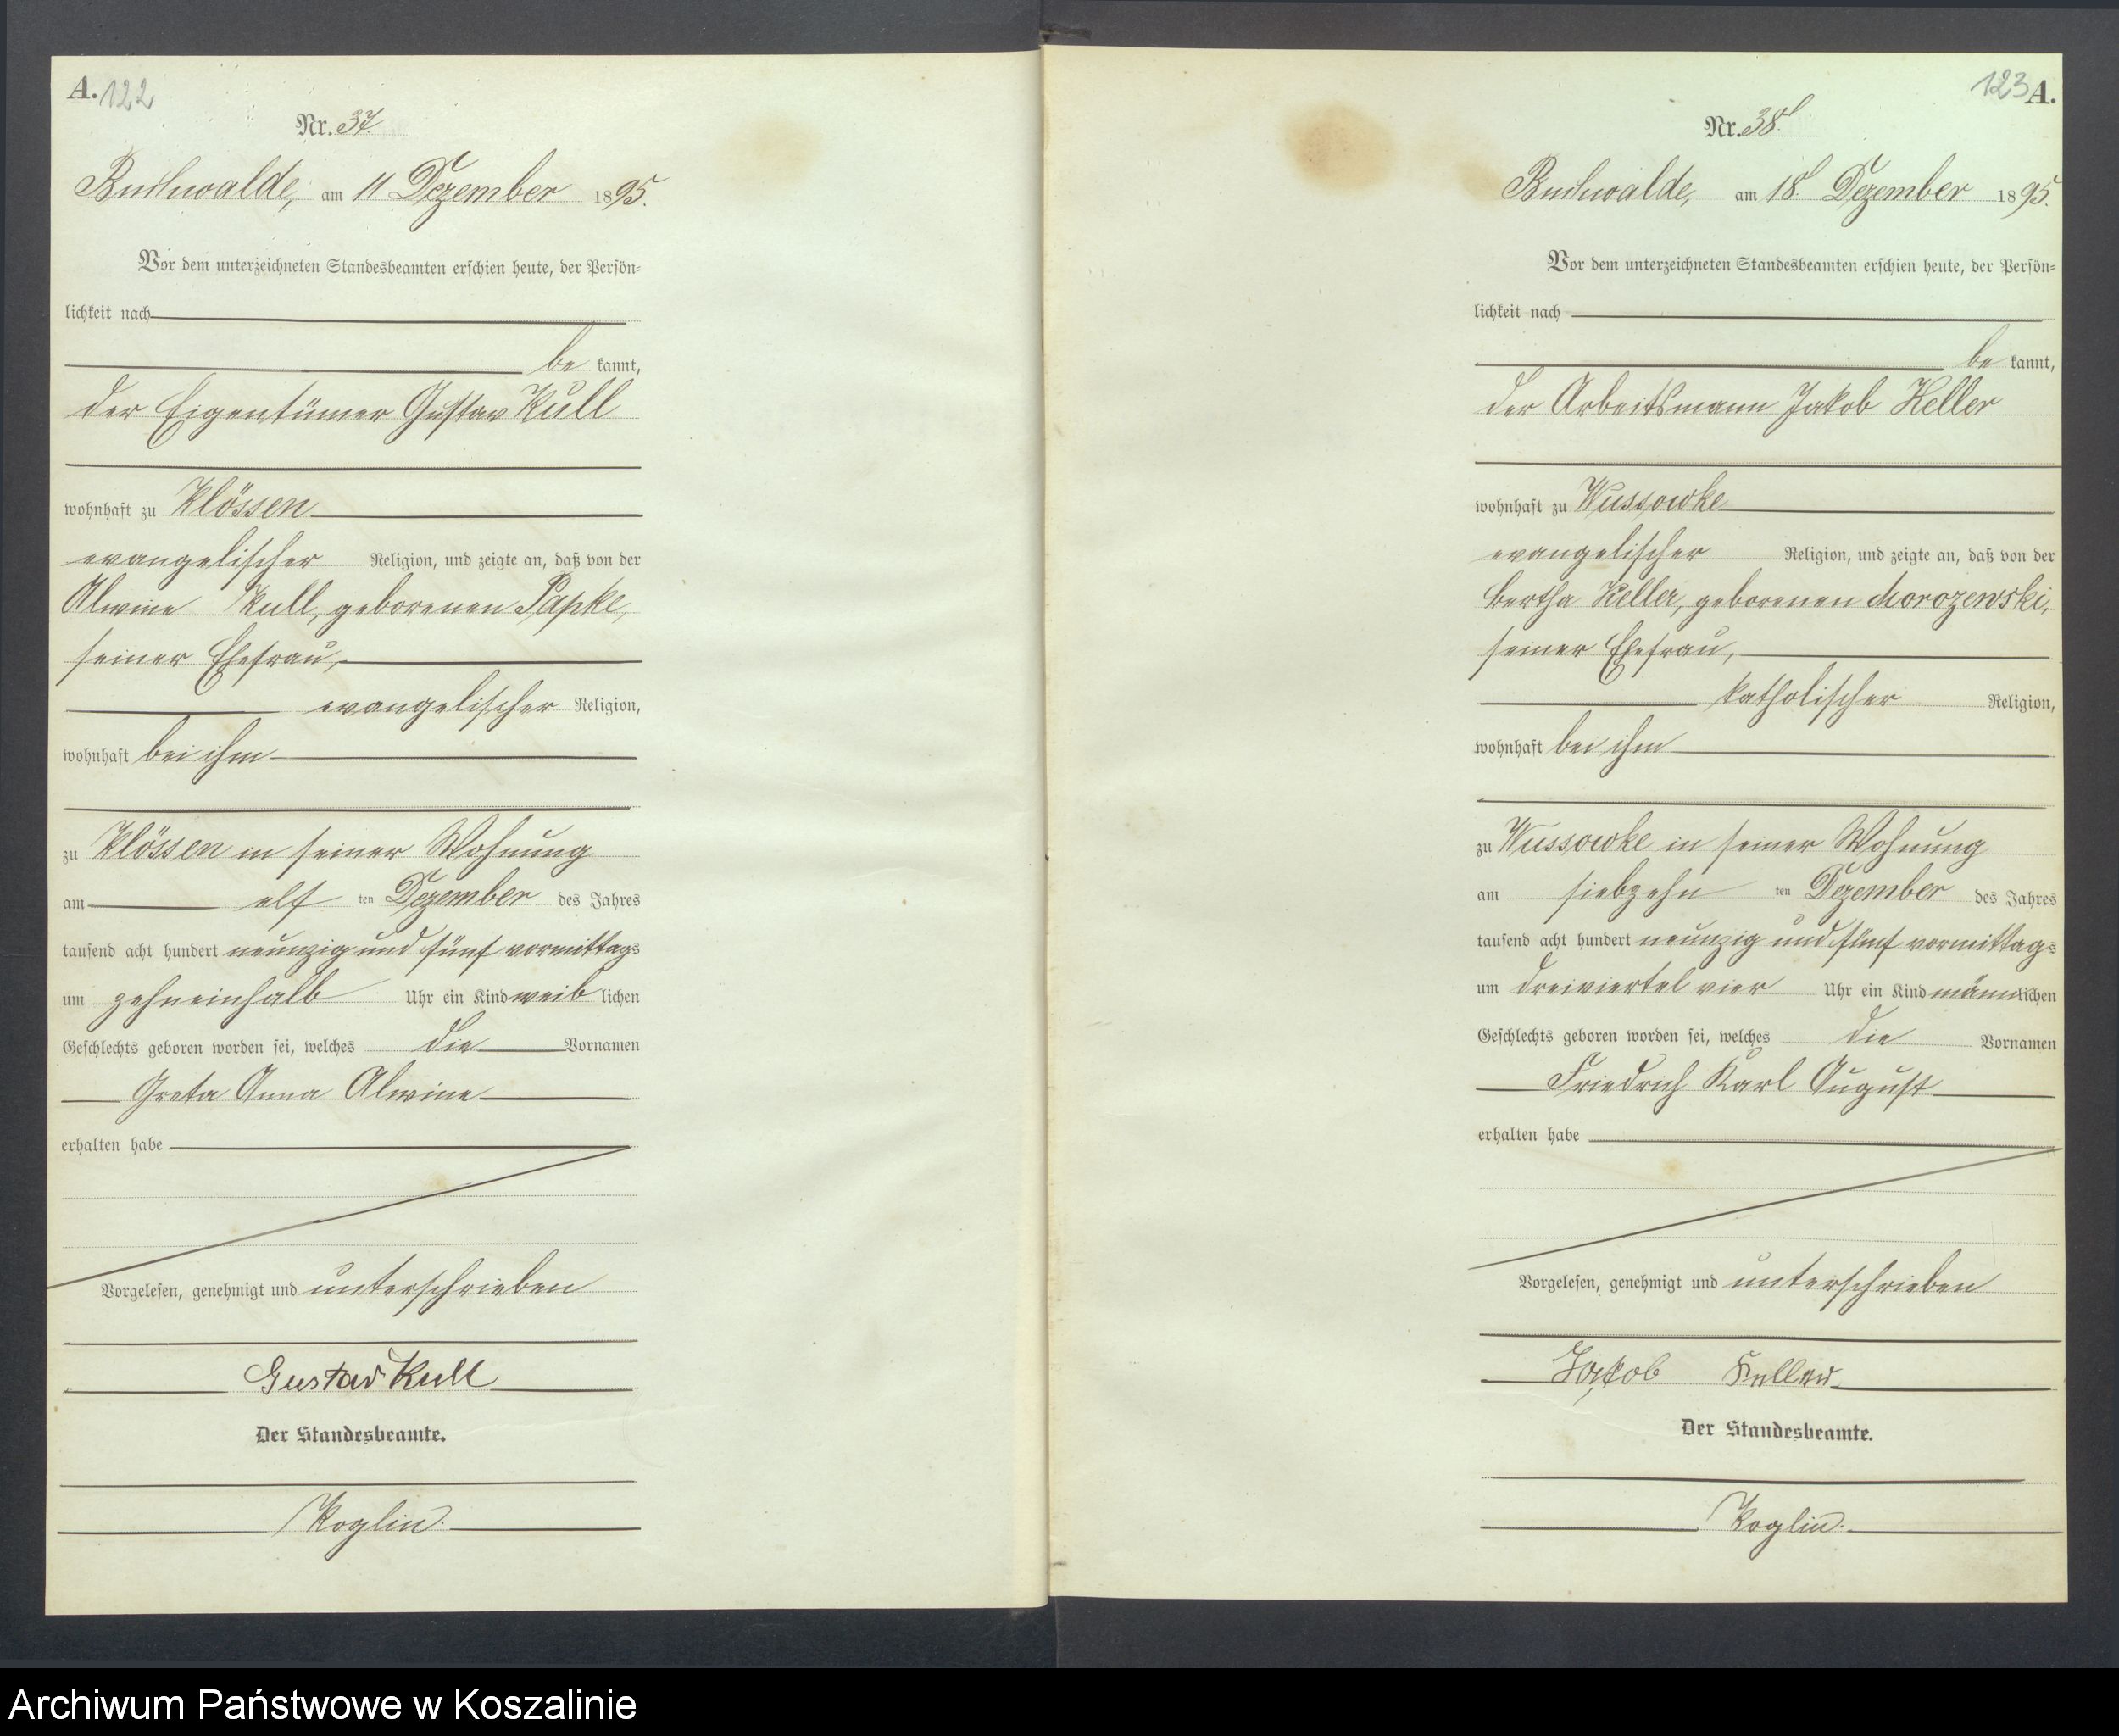 A. 122
Nr. 37.
Buchwalde, am 11. Dezember 1895.
Vor dem unterzeichneten Standesbeamten erschien heute, der Persön-
lichkeit nach
be kannt,
der Eigentümer Gustav Kull
wohnhaft zu Klössen
evangelischer Religion, und zeigte an, daß von der
Alwine Kull, geborenen Papke,
seiner Ehefrau,
evangelischer Religion,
wohnhaft bei ihm
zu Klössen in seiner Wohnung
am elf ten Dezember des Jahres
tausend acht hundert neunzig und fünf vormittags
um zehneinhalb Uhr ein Kind weib lichen
Geschlechts geboren worden sei, welches die Vornamen
Greta Anna Alwine
erhalten habe
Vorgelesen, genehmigt und unterschrieben
Gustav Kull
Der Standesbeamte.
Koglin.
123 A.
Nr. 38.
Buchwalde, am 18. Dezember 1895.
Vor dem unterzeichneten Standesbeamten erschien heute, der Persön-
lichkeit nach
be kannt,
der Arbeitsmann Jakob Keller
wohnhaft zu Wussowke
evangelischer Religion, und zeigte an, daß von der
Bertha Keller, geborenen Morozewski,
seiner Ehefrau,
katholischer Religion,
wohnhaft bei ihm
zu Wussowke in seiner Wohnung
am siebzehn ten Dezember des Jahres
tausend acht hundert neunzig und fünf vormittags
um dreiviertel vier Uhr ein Kind männlichen
Geschlechts geboren worden sei, welches die Vornamen
Friedrich Karl August
erhalten habe
Vorgelesen, genehmigt und unterschrieben
Jakob Keller
Der Standesbeamte.
Koglin.
Archiwum Państwowe w Koszalinie